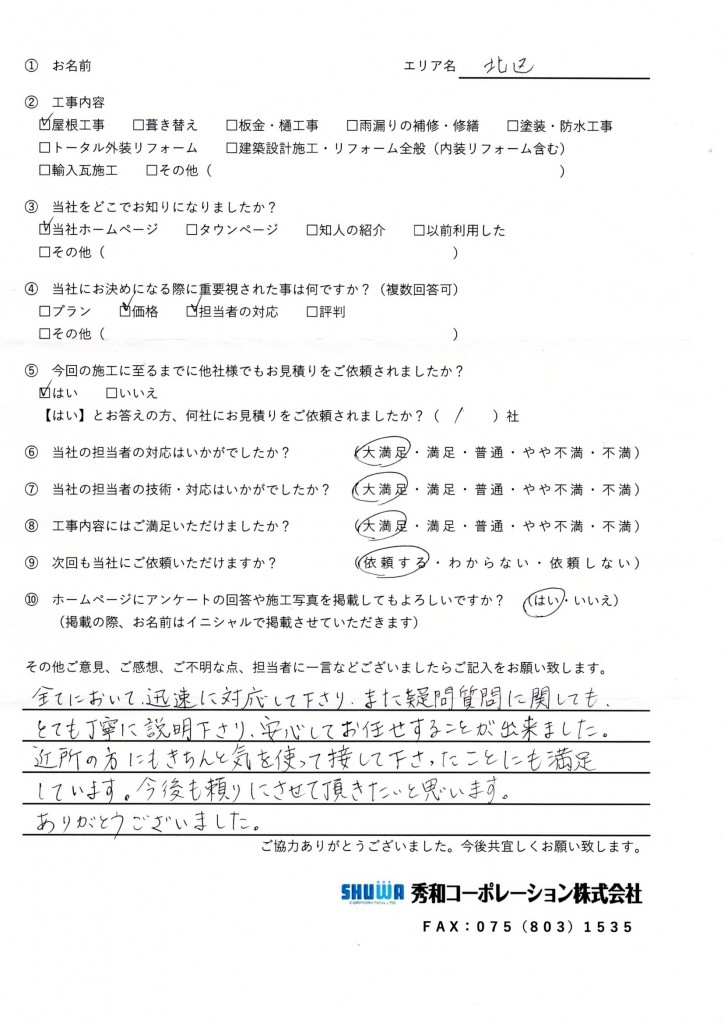 ① お名前 エリア名 北区
② 工事内容
☑屋根工事 □葺き替え □板金・樋工事 □雨漏りの補修・修繕 □塗装・防水工事
□トータル外装リフォーム □建築設計施工・リフォーム全般（内装リフォーム含む）
□輸入瓦施工 □その他（ ）
③ 当社をどこでお知りになりましたか？
☑当社ホームページ □タウンページ □知人の紹介 □以前利用した
□その他（ ）
④ 当社にお決めになる際に重要視された事は何ですか？（複数回答可）
□プラン ☑価格 ☑担当者の対応 □評判
□その他（ ）
⑤ 今回の施工に至るまでに他社様でもお見積りをご依頼されましたか？
☑はい □いいえ
【はい】とお答えの方、何社にお見積りをご依頼されましたか？（ 1 ）社
⑥ 当社の担当者の対応はいかがでしたか？ （大満足・満足・普通・やや不満・不満）
⑦ 当社の担当者の技術・対応はいかがでしたか？ （大満足・満足・普通・やや不満・不満）
⑧ 工事内容にはご満足いただけましたか？ （大満足・満足・普通・やや不満・不満）
⑨ 次回も当社にご依頼いただけますか？ （依頼する・わからない・依頼しない）
⑩ ホームページにアンケートの回答や施工写真を掲載してもよろしいですか？ （はい・いいえ）
（掲載の際、お名前はイニシャルで掲載させていただきます）
その他ご意見、ご感想、ご不明な点、担当者に一言などございましたらご記入をお願い致します。
全てにおいて、迅速に対応して下さり、また疑問質問に関しても、
とても丁寧に説明下さり、安心してお任せすることが出来ました。
近所の方にもきちんと気を使って接して下さったことにも満足
しています。今後も頼りにさせて頂きたいと思います。
ありがとうございました。
ご協力ありがとうございました。今後共宜しくお願い致します。
SHUWA CORPORATION LTD 秀和コーポレーション株式会社
FAX：075（803）1535